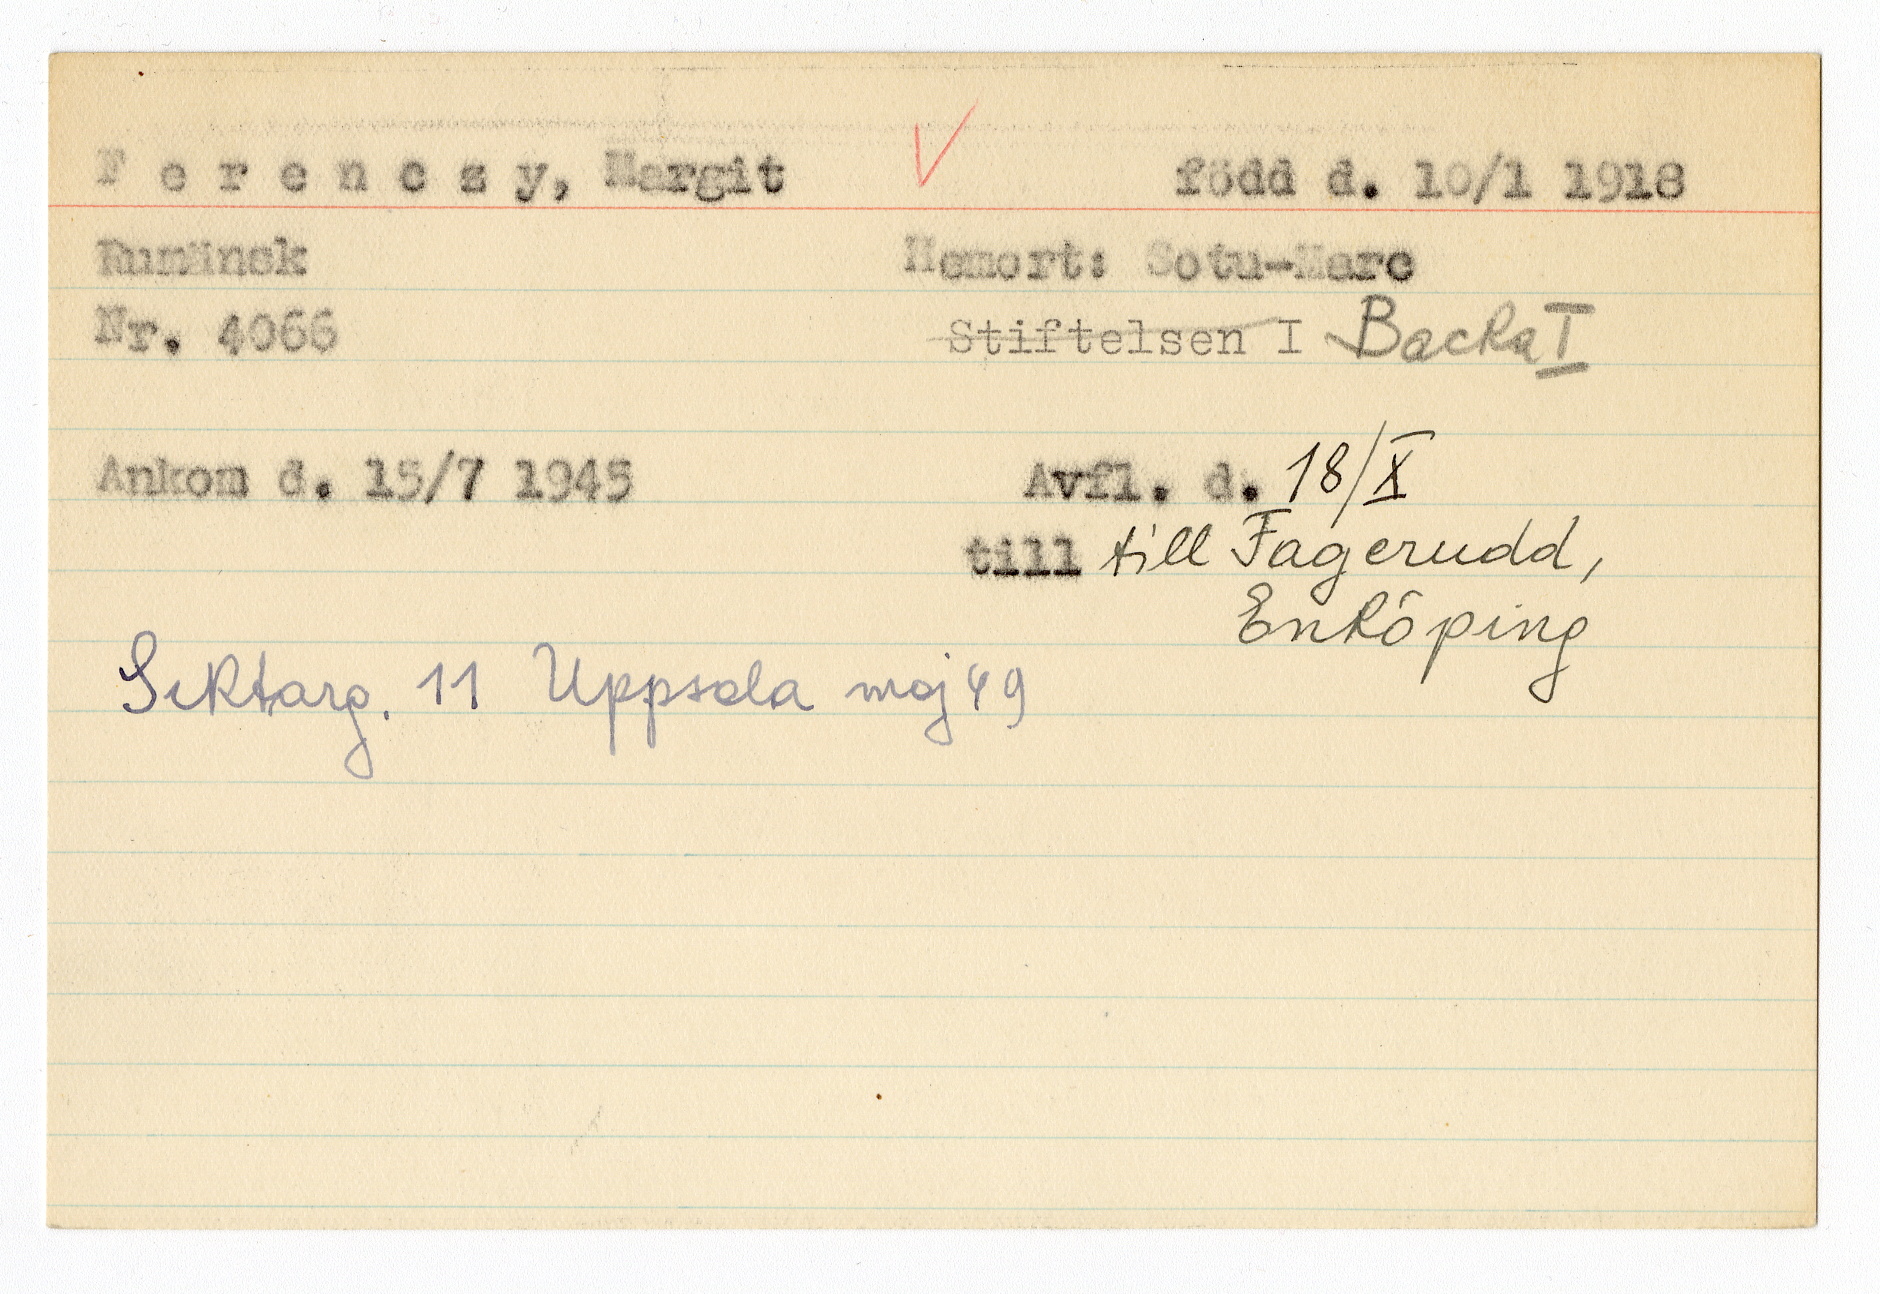 F e r e n c z y, Margit född d. 10/1 1918
Rumänsk Hemort: Sotu-Mare
Nr. 4066 Stiftelsen I Backa I
Ankom d. 15/7 1945 Avfl. d. 18/X
till till Fagerudd,
Enköping
Siktarg. 11 Uppsala maj 49